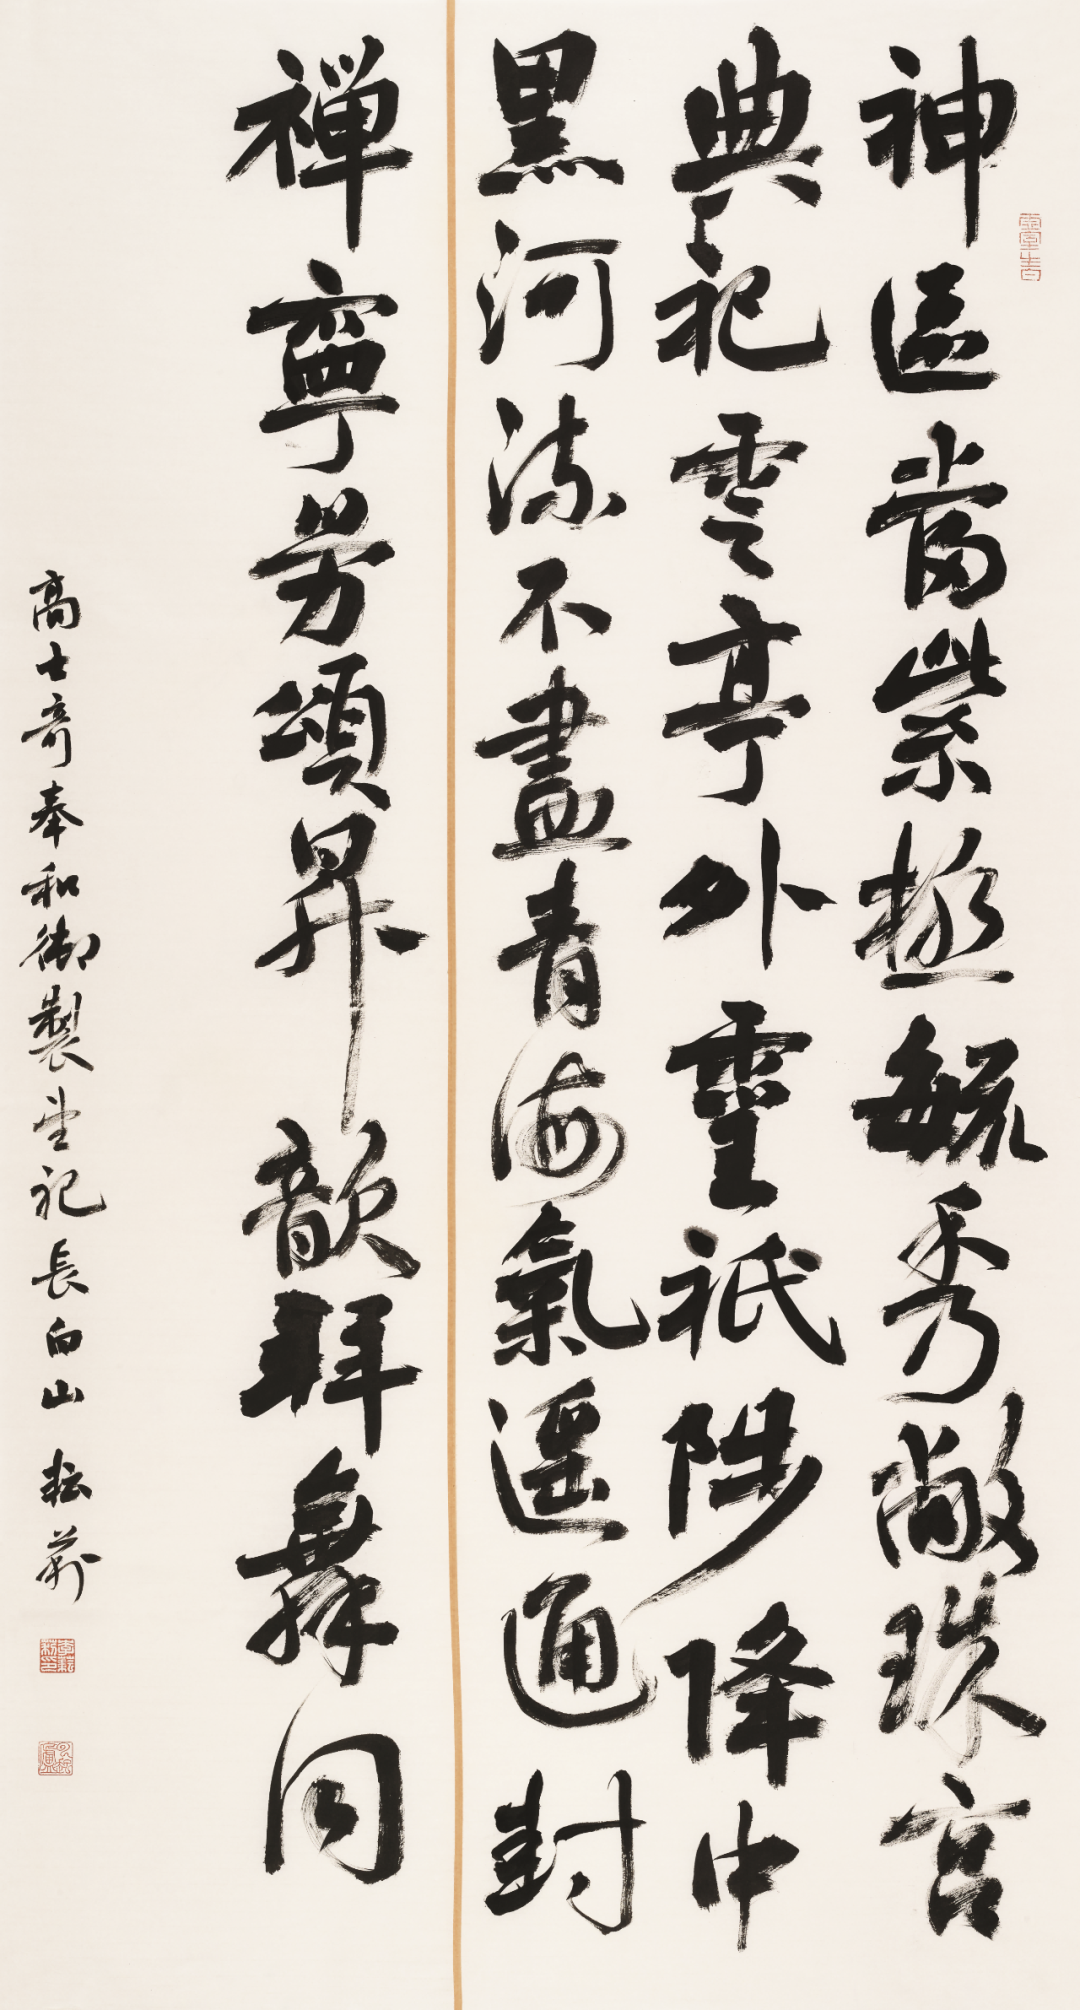 神區當紫極毓秀敞珠宮
典祀雲亭外靈祇陟降中
黑河流不盡青海氣遥通封
禪寧芳頌昇歆拜舞同
高士奇奉和御製望祀長白山 耘莉